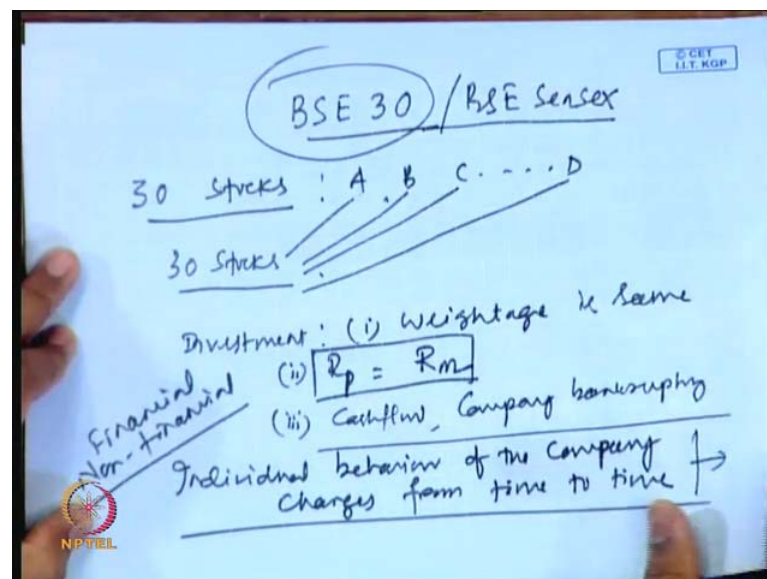 © CET
I.I.T. KGP
BSE 30 / BSE Sensex
30 Stocks : A . B C . - - . . D
30 Stocks
Investment : (i) Weightage is Same
(ii) Rp = Rm
(iii) Cashflow, Company bankruptcy
Financial
Non-Financial
Individual behavior of the Company
Changes from time to time
NPTEL